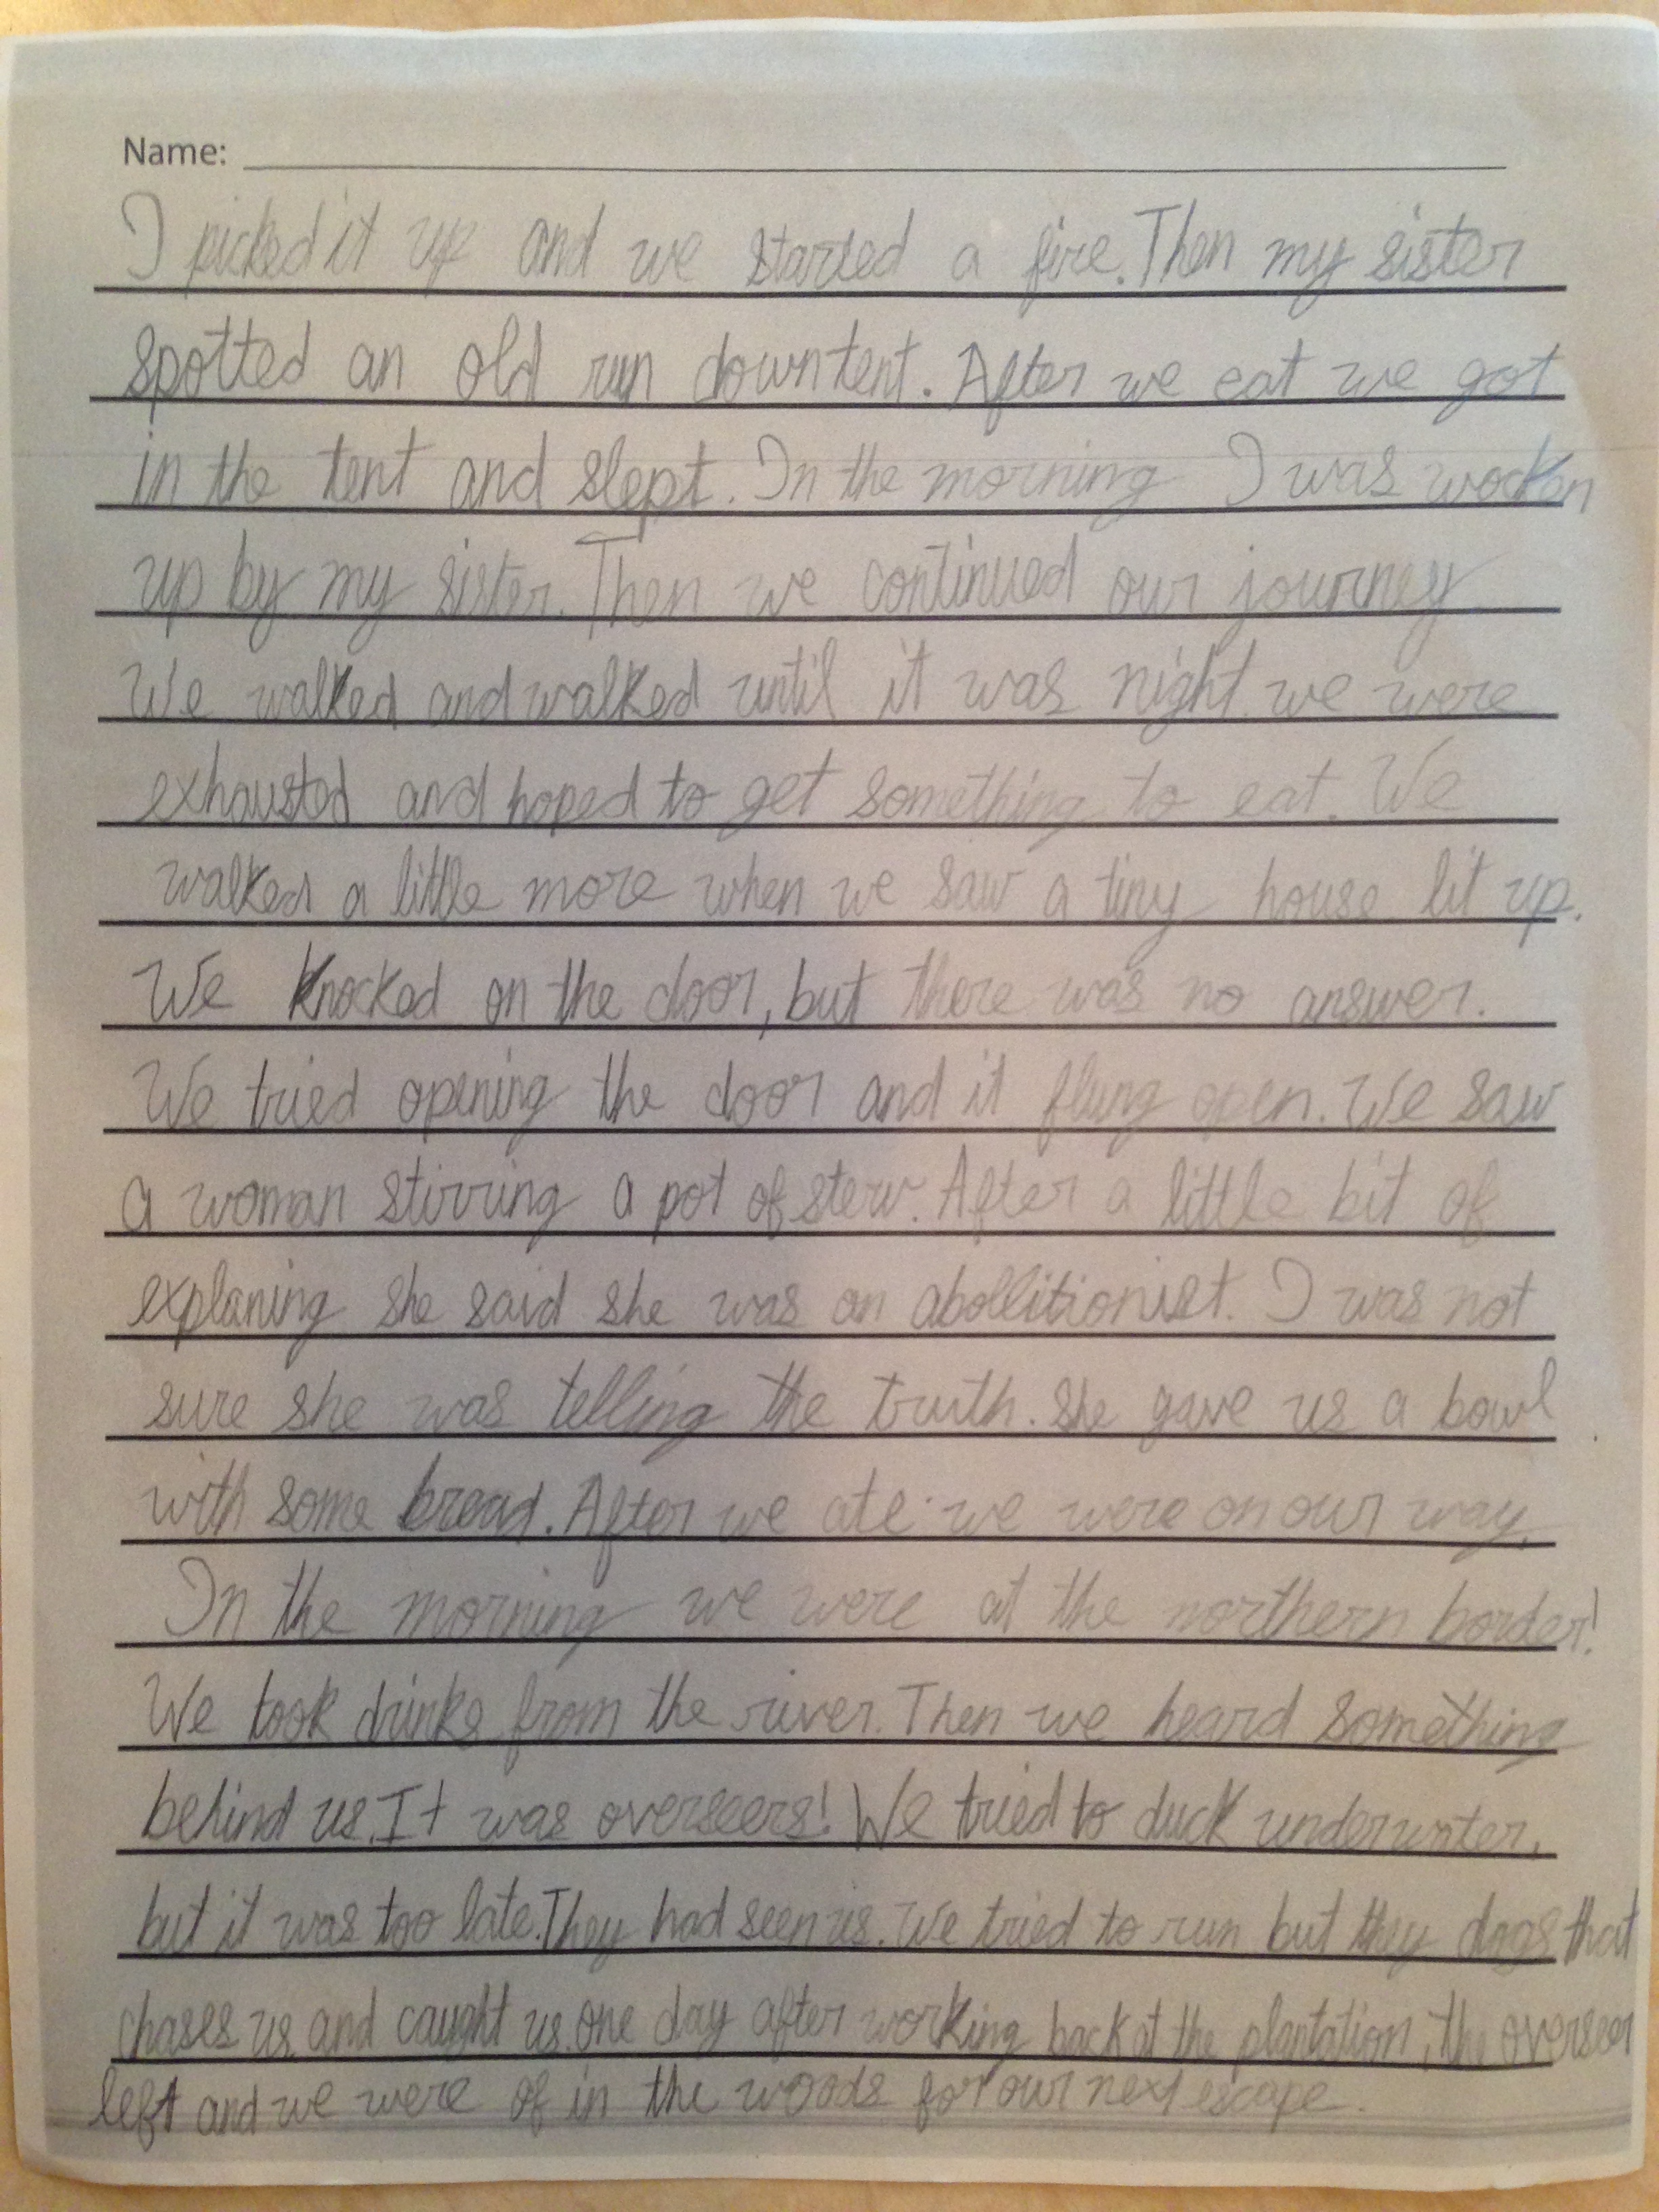 Name:
I picked it up and we started a fire. Then my sister
spotted an old run down tent. After we eat we got
in the tent and slept. In the morning I was wocken
up by my sister. Then we continued our journey
We walked and walked until it was night. we were
exhausted and hoped to get something to eat. We
walked a little more when we saw a tiny house lit up.
We knocked on the door, but there was no answer.
We tried opening the door and it flung open. We saw
a woman stirring a pot of stew. After a little bit of
explaning she said she was an abollitionist. I was not
sure she was telling the truth. She gave us a bowl
with some bread. After we ate we were on our way.
In the morning we were at the northern border!
We took drinks from the river. Then we heard something
behind us. It was overseers! We tried to duck underwater,
but it was too late. They had seen us. We tried to run but they dogs that
chases us and caught us. One day after working back at the plantation, the overseer
left and we were of in the woods for our next escape.